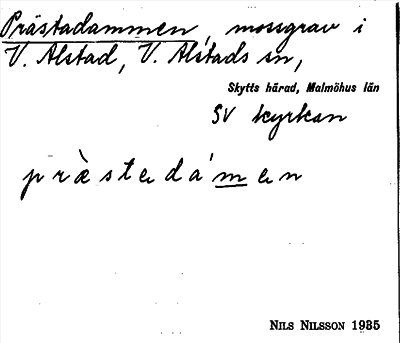 Prästadammen, mossgrav i
V. Alstad, V. Alstads sn,
Skytts härad, Malmöhus län
SV kyrkan
pr̀æstedá'men
NILS NILSSON 1935